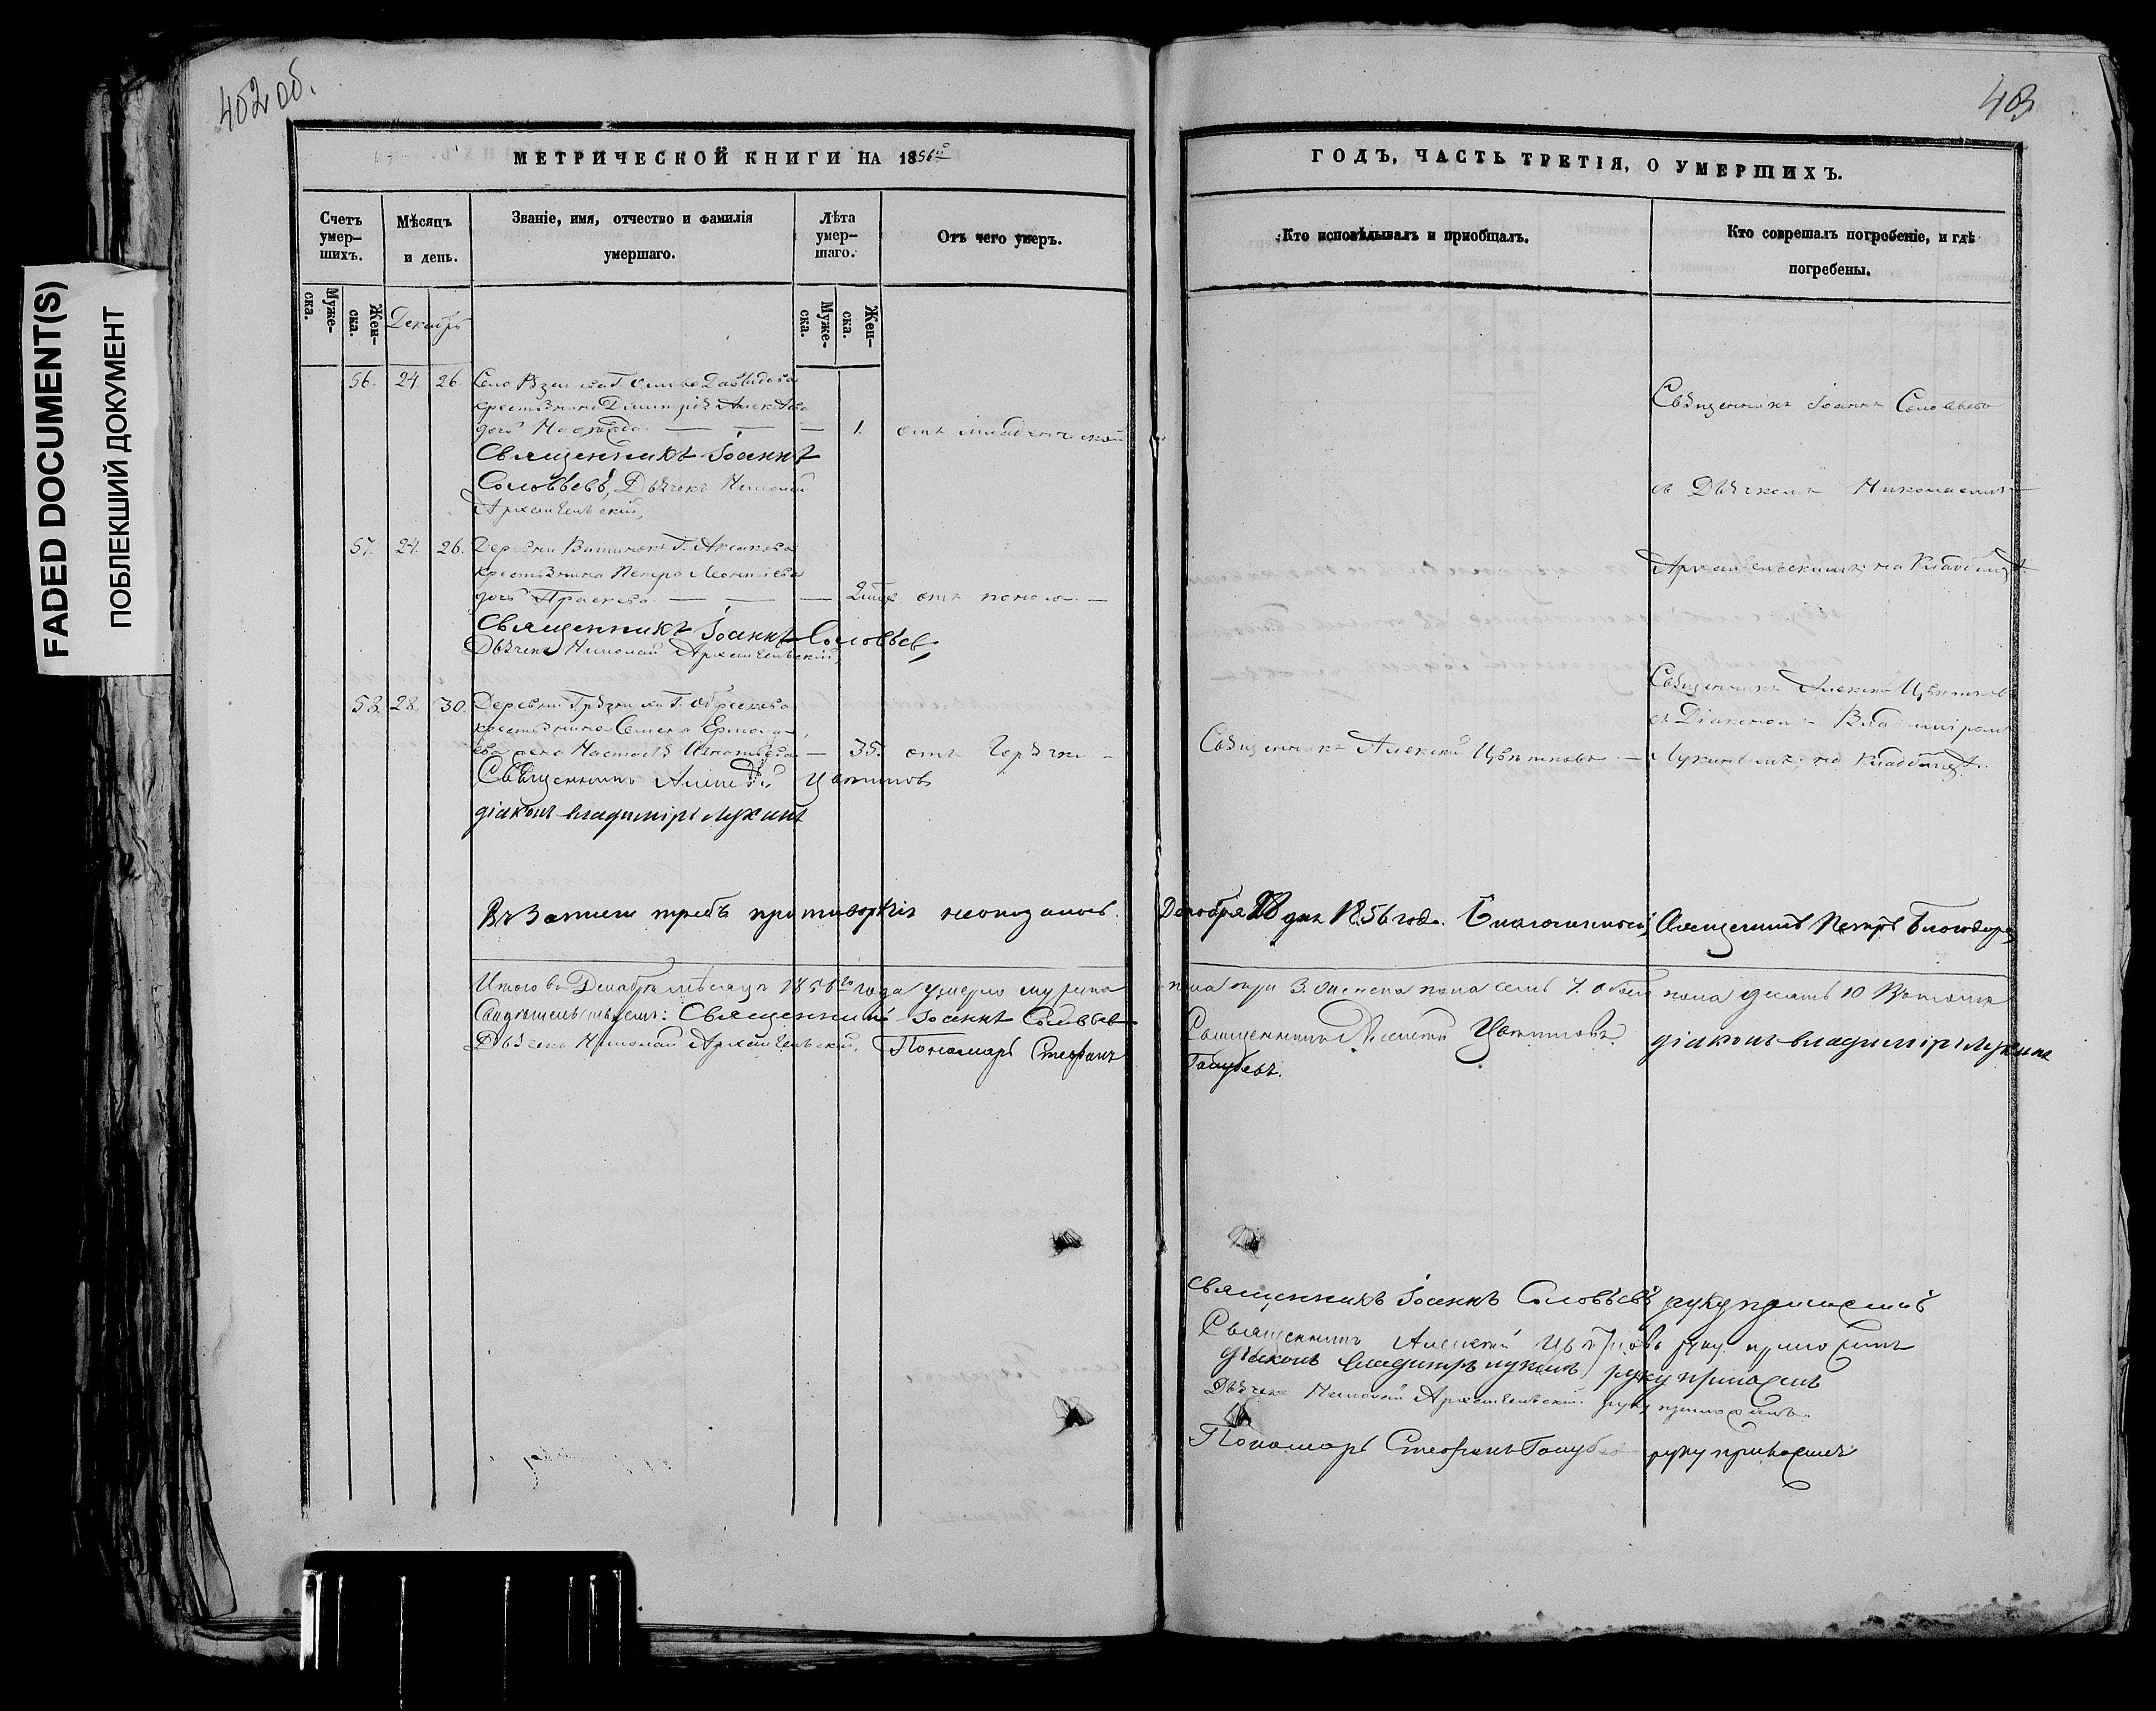 402 об.
403
FADED DOCUMENT(S)
ПОБЛЕКШИЙ ДОКУМЕНТ
МЕТРИЧЕСКОЙ КНИГИ НА 1856й
Счетъ умер-
шихъ.
Мѣсяцъ
и день.
Званіе, имя, отчество и фамилія
умершаго.
Лѣта
умер-
шаго.
Отъ чего умеръ.
Муже-
ска.
Жен-
ска.
Декабрь
Муже-
ска.
Жен-
ска.
56. 24. 26. Село Г. Давыдова
крестьянина Димитрія
дочь — — — 1. отъ младенческой
Священникъ Іоаннъ
Соловьевъ, Дьячекъ Николай
Архангельскій,
57. 24. 26. Деревни Г.
крестьянина Петра Леонтьева
дочь — — — отъ —
Священникъ Іоаннъ Соловьев,
Дьячекъ Николай Архангельскій,
58. 28. 30. Деревни Г.
крестьянина Семена
жена Игнатьева — 35. отъ Горячки —
Священникъ Алексѣй Цвѣтковъ
діаконъ Владиміръ Лукинъ
Въ записи требъ противорѣчія неоказалось.
Итого въ Декабрѣ мѣсяцѣ 1856го года умерло мужска
Свидѣтельствуемъ: Священникъ Іоаннъ Соловьев
Дьячекъ Николай Архангельскій. Пономарь Стефанъ
ГОДЪ, ЧАСТЬ ТРЕТІЯ, О УМЕРШИХЪ.
Кто исповѣдывалъ и пріобщалъ.
Кто соврешалъ погребеніе, и гдѣ
погребены.
Священникъ Іоаннъ Соловьевъ
съ Дьячкомъ Николаемъ
Архангельскимъ на кладбищѣ.
Священникъ Алексѣй Цвѣтковъ
съ Діакономъ Владиміромъ
Священникъ Алексѣй Цвѣтковъ. — Лукинымъ, на кладбищѣ.
Декабря 28 дня 1856 года. Благочинный, Священникъ Петръ
пола три 3. женска пола семь 7. обоего пола десять 10
Священникъ Алексѣй Цвѣтковъ. діаконъ Владиміръ Лукинъ
Голубевъ.
Священникъ Іоаннъ Соловьевъ руку приложилъ
Священникъ Алексѣй Цвѣтковъ руку приложилъ
діаконъ Владиміръ Лукинъ руку приложилъ
Дьячекъ Николай Архангельскій руку приложилъ.
Пономарь Стефанъ Голубев руку приложилъ